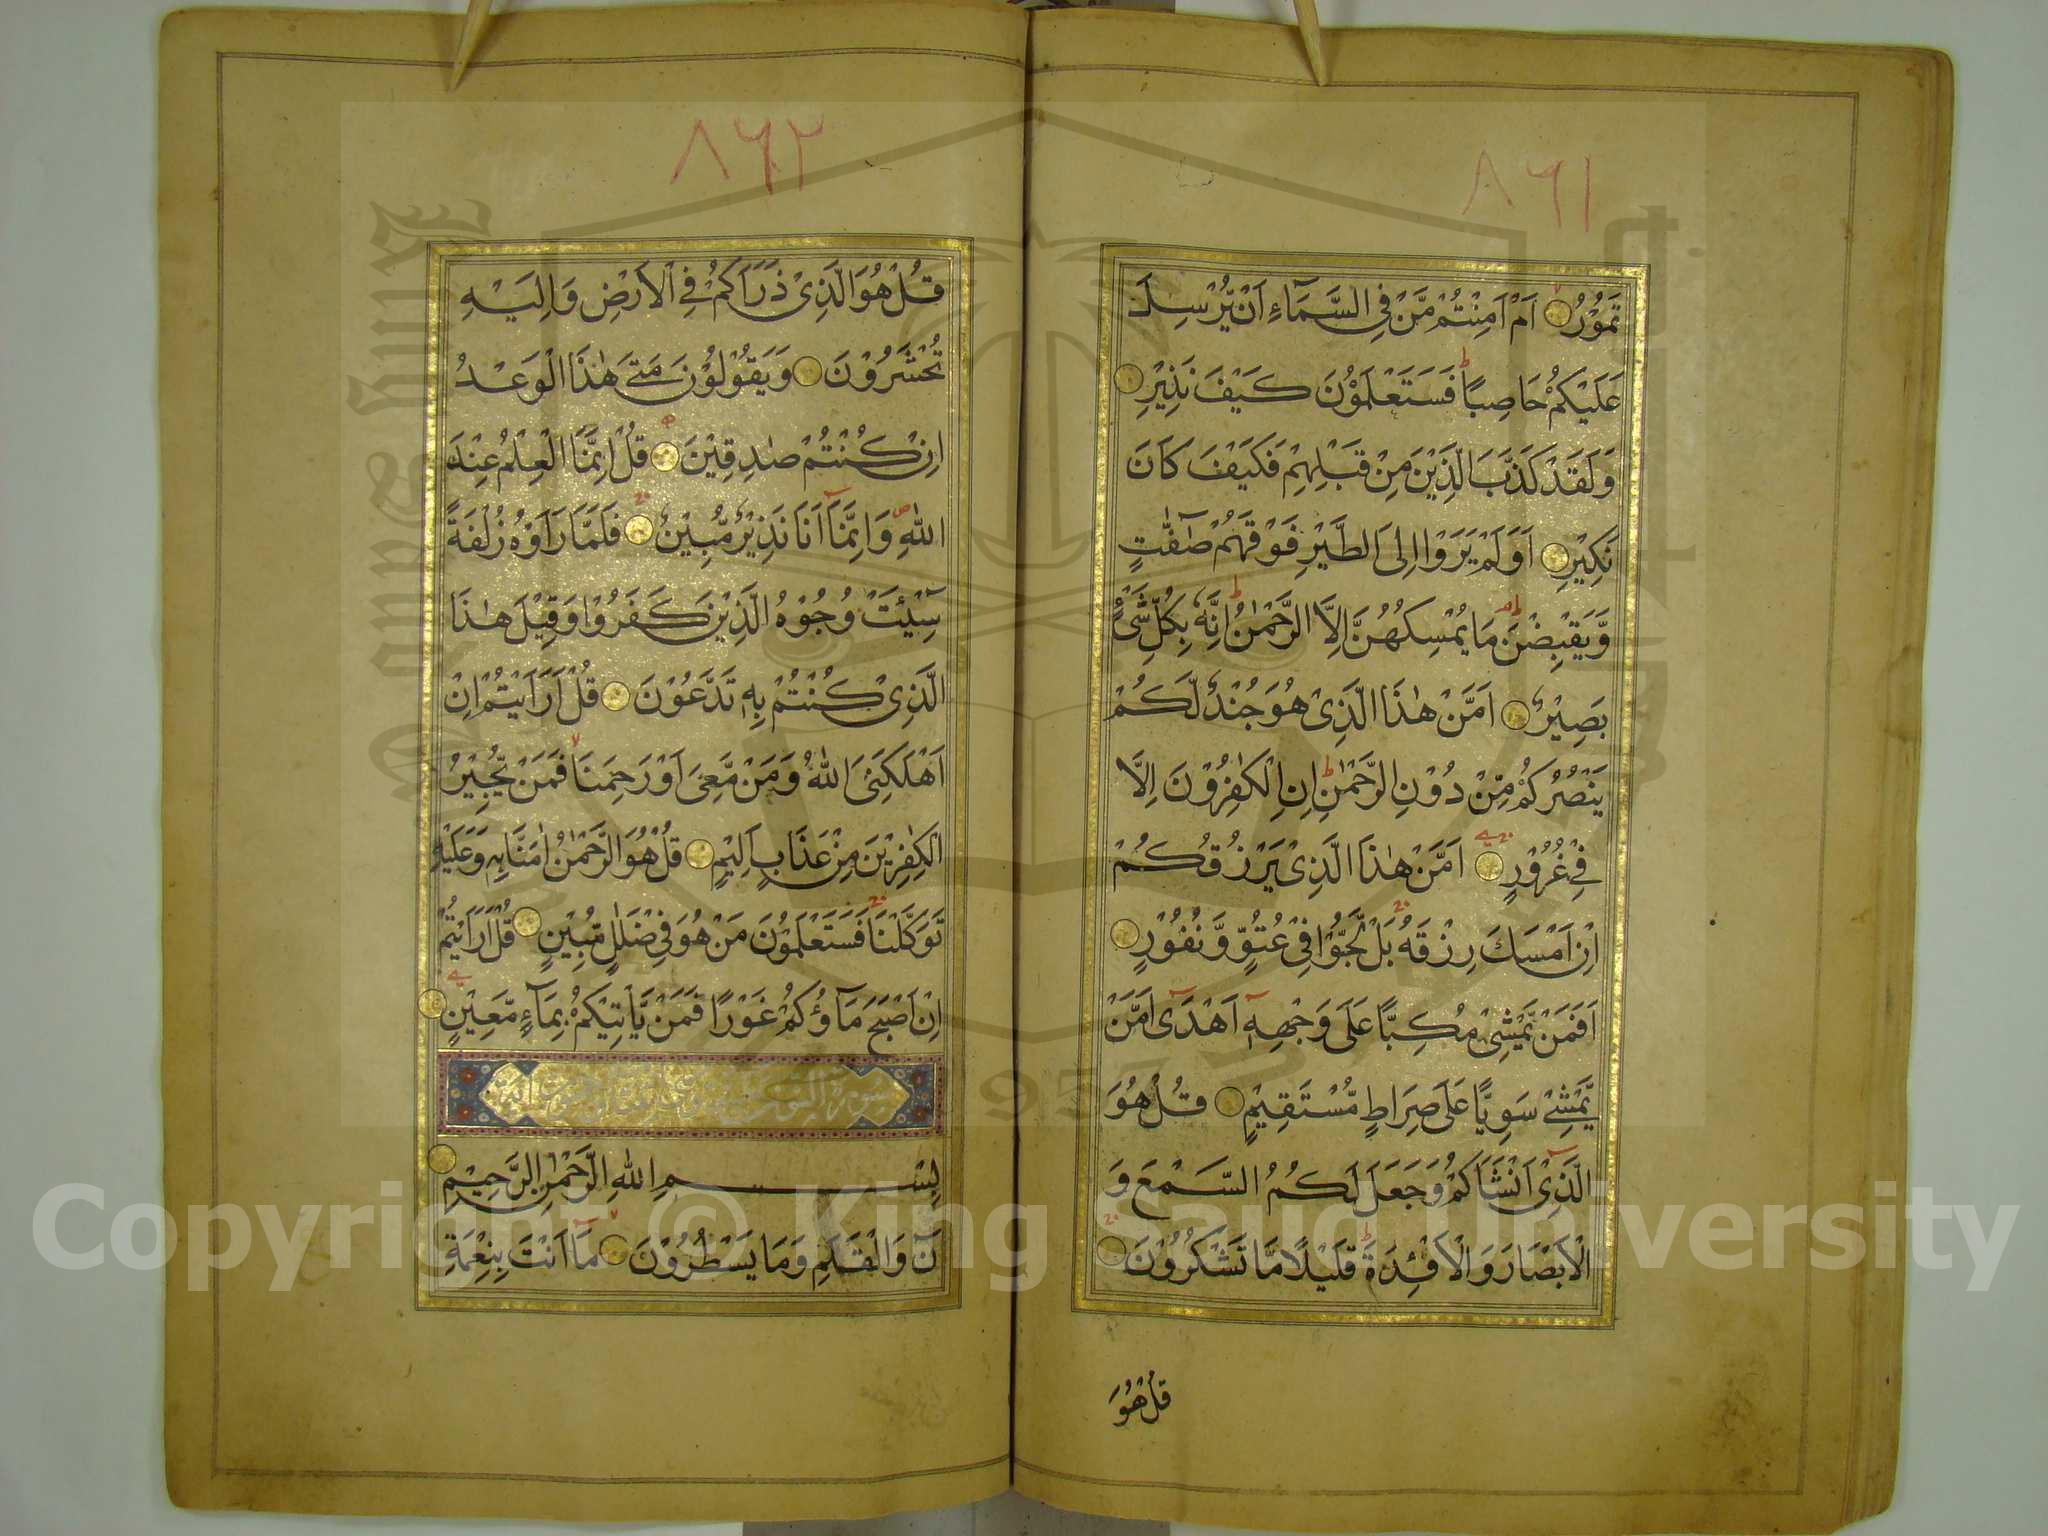 ٨٦١
تَمُوْرُ اَمْ اَمِنْتُمْ مَّنْ فِى السَّمَآءِ اَنْ يُّرْسِلَ
عَلَيْكُمْ حَاصِبًا فَسَتَعْلَمُوْنَ كَيْفَ نَذِيْرِ
وَلَقَدْ كَذَّبَ الَّذِيْنَ مِنْ قَبْلِهِمْ فَكَيْفَ كَانَ
نَكِيْرِ اَوَلَمْ يَرَوْا اِلَى الطَّيْرِ فَوْقَهُمْ صٰٓفّٰتٍ
وَّيَقْبِضْنَ مَا يُمْسِكُهُنَّ اِلَّا الرَّحْمٰنُ اِنَّهٗ بِكُلِّ شَىْءٍ
بَصِيْرٌ اَمَّنْ هٰذَا الَّذِىْ هُوَ جُنْدٌ لَّكُمْ
يَنْصُرُكُمْ مِّنْ دُوْنِ الرَّحْمٰنِ اِنِ الْكٰفِرُوْنَ اِلَّا
فِىْ غُرُوْرٍ اَمَّنْ هٰذَا الَّذِىْ يَرْزُقُكُمْ
اِنْ اَمْسَكَ رِزْقَهٗ بَلْ لَّجُّوْا فِىْ عُتُوٍّ وَّنُفُوْرٍ
اَفَمَنْ يَّمْشِىْ مُكِبًّا عَلٰى وَجْهِهٖٓ اَهْدٰٓى اَمَّنْ
يَّمْشِىْ سَوِيًّا عَلٰى صِرَاطٍ مُّسْتَقِيْمٍ قُلْ هُوَ
الَّذِىْٓ اَنْشَاَكُمْ وَجَعَلَ لَكُمُ السَّمْعَ وَ
الْاَبْصَارَ وَالْاَفْئِدَةَ قَلِيْلًا مَّا تَشْكُرُوْنَ
قُلْ هُوَ
٨٦٢
قُلْ هُوَ الَّذِىْ ذَرَاَكُمْ فِى الْاَرْضِ وَاِلَيْهِ
تُحْشَرُوْنَ وَيَقُوْلُوْنَ مَتٰى هٰذَا الْوَعْدُ
اِنْ كُنْتُمْ صٰدِقِيْنَ قُلْ اِنَّمَا الْعِلْمُ عِنْدَ
اللّٰهِ وَاِنَّمَآ اَنَا نَذِيْرٌ مُّبِيْنٌ فَلَمَّا رَاَوْهُ زُلْفَةً
سِيْٓئَتْ وُجُوْهُ الَّذِيْنَ كَفَرُوْا وَقِيْلَ هٰذَا
الَّذِىْ كُنْتُمْ بِهٖ تَدَّعُوْنَ قُلْ اَرَاَيْتُمْ اِنْ
اَهْلَكَنِىَ اللّٰهُ وَمَنْ مَّعِىَ اَوْ رَحِمَنَا فَمَنْ يُّجِيْرُ
الْكٰفِرِيْنَ مِنْ عَذَابٍ اَلِيْمٍ قُلْ هُوَ الرَّحْمٰنُ اٰمَنَّا بِهٖ وَعَلَيْهِ
تَوَكَّلْنَا فَسَتَعْلَمُوْنَ مَنْ هُوَ فِىْ ضَلٰلٍ مُّبِيْنٍ قُلْ اَرَاَيْتُمْ
اِنْ اَصْبَحَ مَآؤُكُمْ غَوْرًا فَمَنْ يَّاْتِيْكُمْ بِمَآءٍ مَّعِيْنٍ
بِسْمِ اللّٰهِ الرَّحْمٰنِ الرَّحِيْمِ
نٓ وَالْقَلَمِ وَمَا يَسْطُرُوْنَ مَآ اَنْتَ بِنِعْمَةِ
Copyright © King Saud University